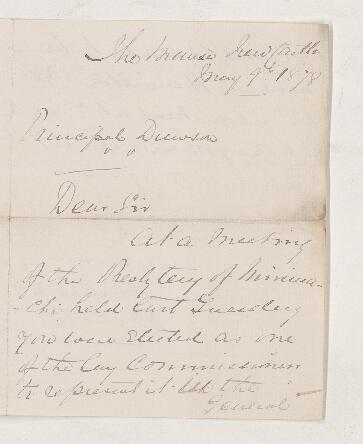 The Manse Newcastle
May 9th 1878
Principal Dawson
" "
Dear Sir
At a meeting
of the Presbytery of Mirima-
-chi held last Tuesday
you were Elected as one
of the Lay Commissioners
to represent it at the
General